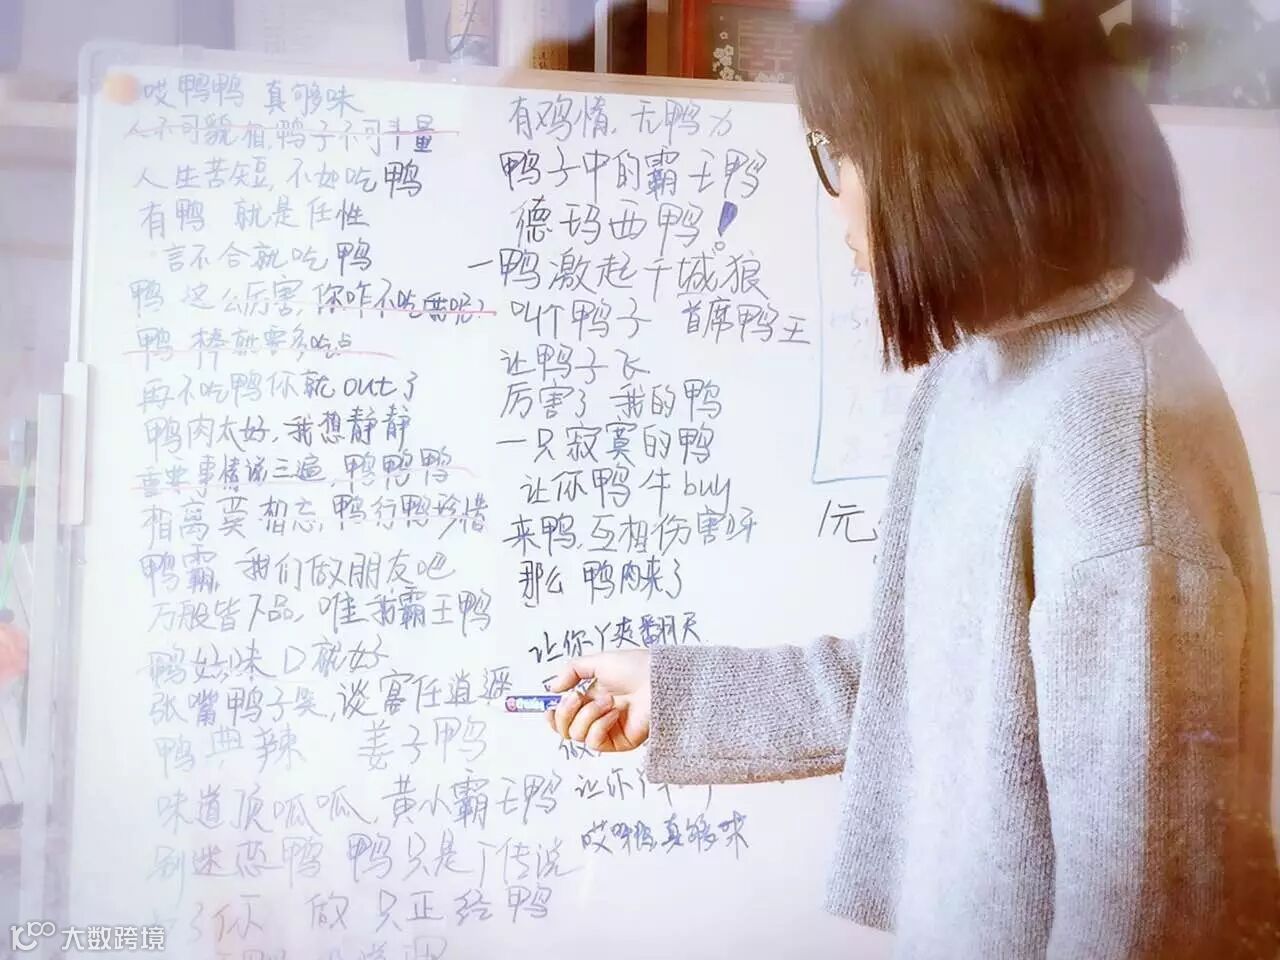 哎鸭鸭 真够味
人不可貌相,鸭子不可斗量
人生苦短,不如吃鸭
有鸭 就是任性
言不合就吃鸭
鸭 这么厉害,你咋不吃鸭呢?
鸭 棒就要多吃点
再不吃鸭你就out了
鸭肉太好,我想静静
重要事情说三遍,鸭鸭鸭
相离莫相忘,鸭行鸭珍惜
鸭霸,我们做朋友吧
万般皆下品,唯我霸王鸭
鸭好,味口就好
张嘴鸭子笑,谈寡任逍遥
鸭典辣 姜子鸭
味道顶呱呱,黄小霸王鸭
别迷恋鸭 鸭只是个传说
了你 做只正经鸭
有鸡情,无鸭力
鸭子中的霸王鸭
德玛西鸭!
一鸭激起千城狼
叫个鸭子 首席鸭王
让鸭子飞
厉害了 我的鸭
一只寂寞的鸭
让你鸭牛buy
来鸭,互相伤害呀
那么 鸭肉来了
让你丫爽翻天
做
让你丫
哎呀鸭真够味
1元
大数跨境